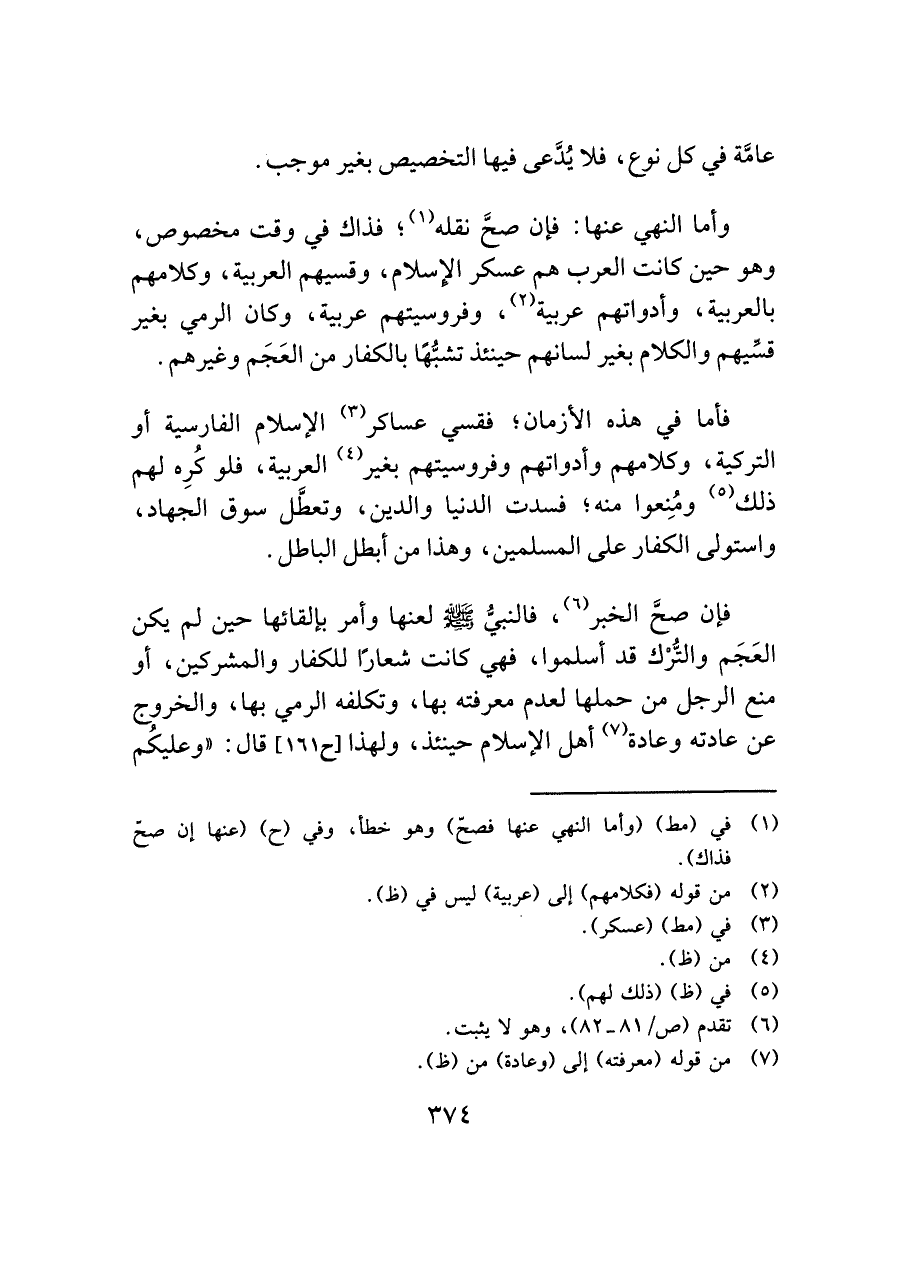 عامَّة في كل نوع، فلا يُدَّعى فيها التخصيص بغير موجب.
وأما النهي عنها: فإن صحَّ نقله(١)؛ فذاك في وقت مخصوص،
وهو حين كانت العرب هم عسكر الإِسلام، وقسيهم العربية، وكلامهم
بالعربية، وأدواتهم عربية(٢)، وفروسيتهم عربية، وكان الرمي بغير
قسِّيهم والكلام بغير لسانهم حينئذ تشبُّهًا بالكفار من العَجَم وغيرهم.
فأما في هذه الأزمان؛ فقسي عساكر(٣) الإسلام الفارسية أو
التركية، وكلامهم وأدواتهم وفروسيتهم بغير(٤) العربية، فلو كُرِه لهم
ذلك(٥) ومُنِعوا منه؛ فسدت الدنيا والدين، وتعطَّل سوق الجهاد،
واستولى الكفار على المسلمين، وهذا من أبطل الباطل.
فإن صحَّ الخبر(٦)، فالنبيُّ ﷺ لعنها وأمر بإلقائها حين لم يكن
العَجَم والتُّرْك قد أسلموا، فهي كانت شعارًا للكفار والمشركين، أو
منع الرجل من حملها لعدم معرفته بها، وتكلفه الرمي بها، والخروج
عن عادته وعادة(٧) أهل الإسلام حينئذ، ولهذا [ح١٦١] قال: «وعليكُم
(١) في (مط) (وأما النهي عنها فصحّ) وهو خطأ، وفي (ح) (عنها إن صحّ
فذاك).
(٢) من قوله (فكلامهم) إلى (عربية) ليس في (ظ).
(٣) في (مط) (عسكر).
(٤) من (ظ).
(٥) في (ظ) (ذلك لهم).
(٦) تقدم (ص/ ٨١-٨٢)، وهو لا يثبت.
(٧) من قوله (معرفته) إلى (وعادة) من (ظ).
٣٧٤